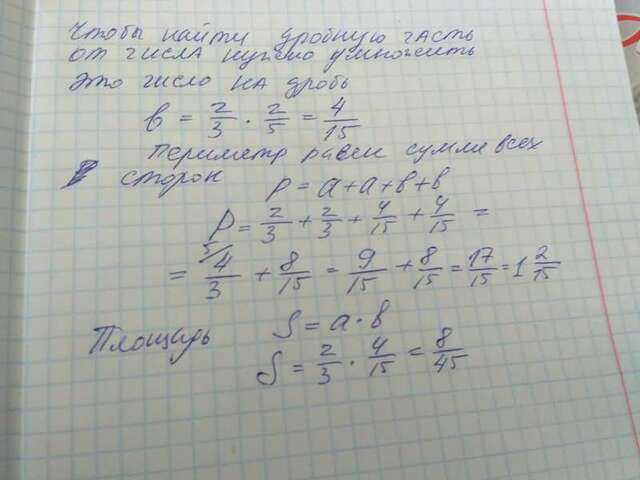 Чтобы найти дробную часть
от числа нужно умножить
это число на дробь
в = 2/3 · 2/5 = 4/15
Периметр равен сумме всех
сторон P = a+a+в+в
P = 2/3 + 2/3 + 4/15 + 4/15 =
= 5/ 4/3 + 8/15 = 9/15 + 8/15 = 17/15 = 1 2/15
Площадь S = a·в
S = 2/3 · 4/15 = 8/45